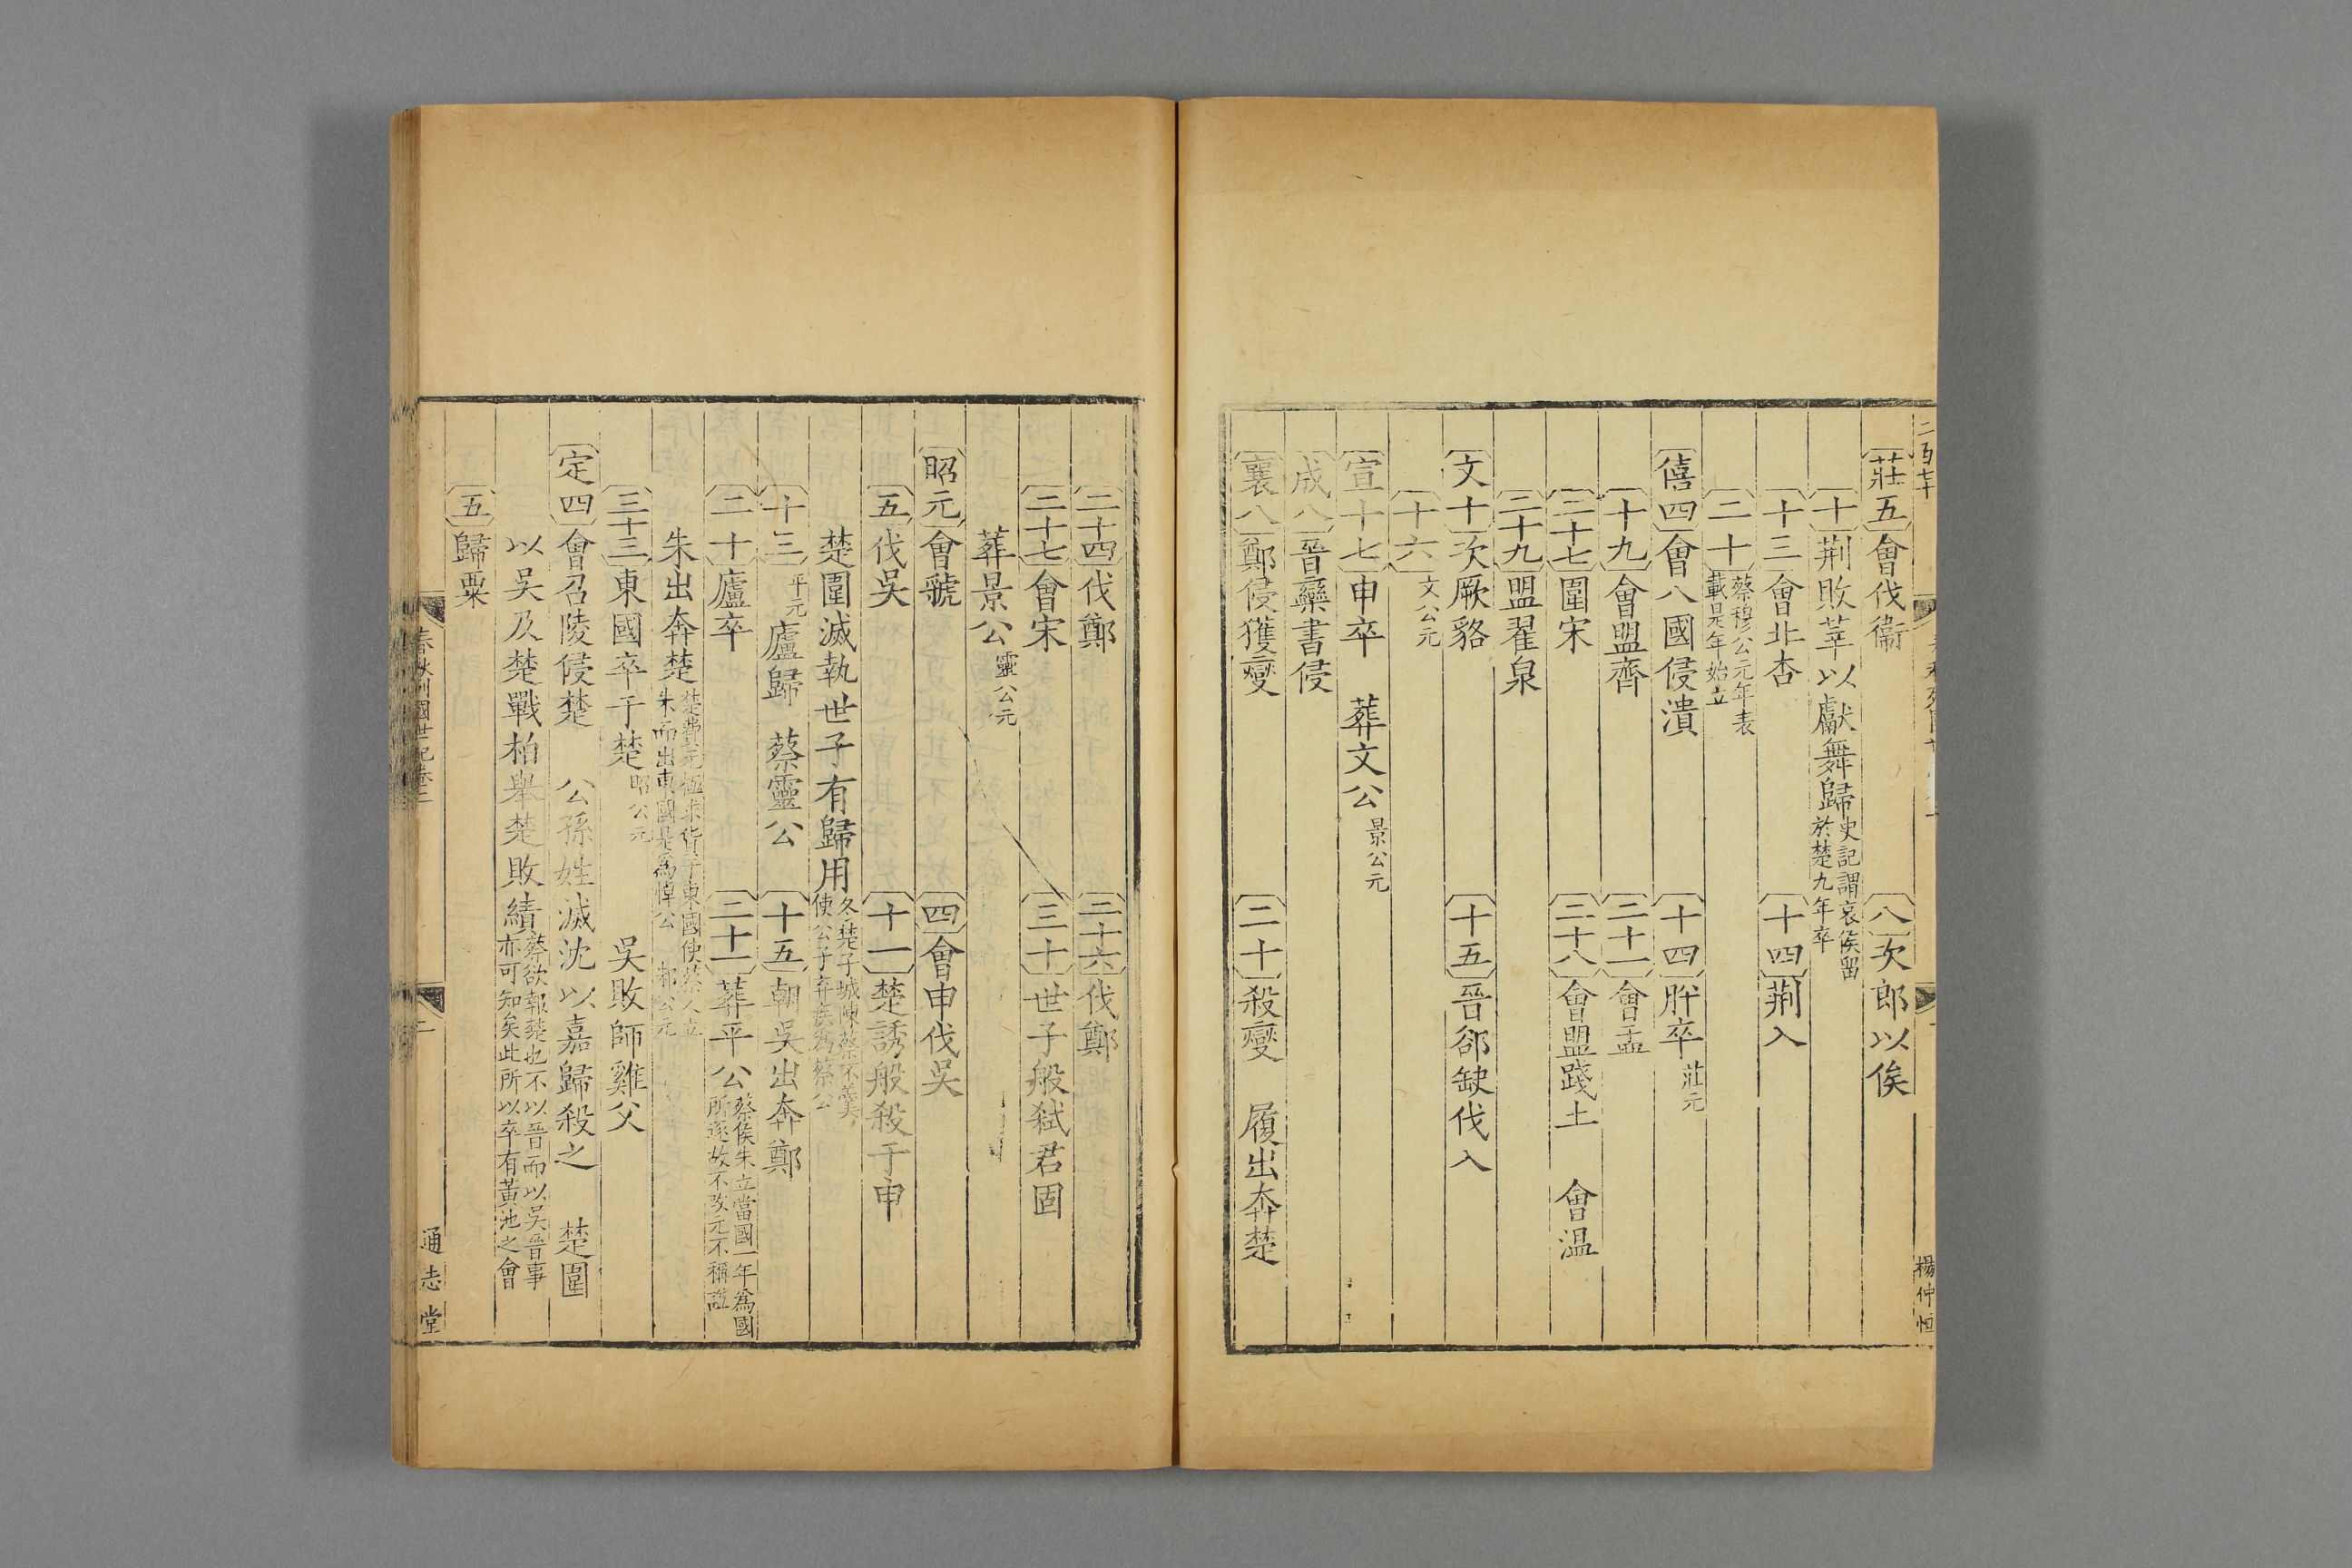 莊五會伐衞 八次郎以俟
十荆敗莘以獻舞歸史記謂哀侯留於楚九年卒
十三會北杏 十四荆入
二十蔡穆公元年表載是年始立
僖四會八國侵潰 十四肸卒莊元
十九會盟齊 二十一會盂
二十七圍宋 二十八會盟踐土 會温
二十九盟翟泉
文十次厥貉 十五晉郤缺伐入
十六文公元
宣十七申卒 葬文公景公元
成八晉欒書侵
襄八鄭侵獲燮 二十殺燮 履出奔楚
楊仲恒
二十四伐鄭 二十六伐鄭
二十七會宋 三十世子般弑君固
葬景公靈公元
昭元會虢 四會申伐吳
五伐吳 十一楚誘般殺于申
楚圍滅執世子有歸用冬楚子城陳蔡不羹使公子弃疾爲蔡公
十三平元廬歸 蔡靈公 十五朝吳出奔鄭
二十廬卒 二十一葬平公蔡侯朱立當國一年爲國所逐故不改元不稱諡
朱出奔楚楚費无極取貨于東國使蔡人立朱而出東國是爲悼公
二十三東國卒于楚昭公元 吳敗師雞父
定四會召陵侵楚 公孫姓滅沈以嘉歸殺之 楚圍
以吳及楚戰柏舉楚敗績蔡欲報楚也不以晉而以吳晉事亦可知矣此所以卒有黃池之會
五歸粟
春秋列國世紀卷二 二 通志堂